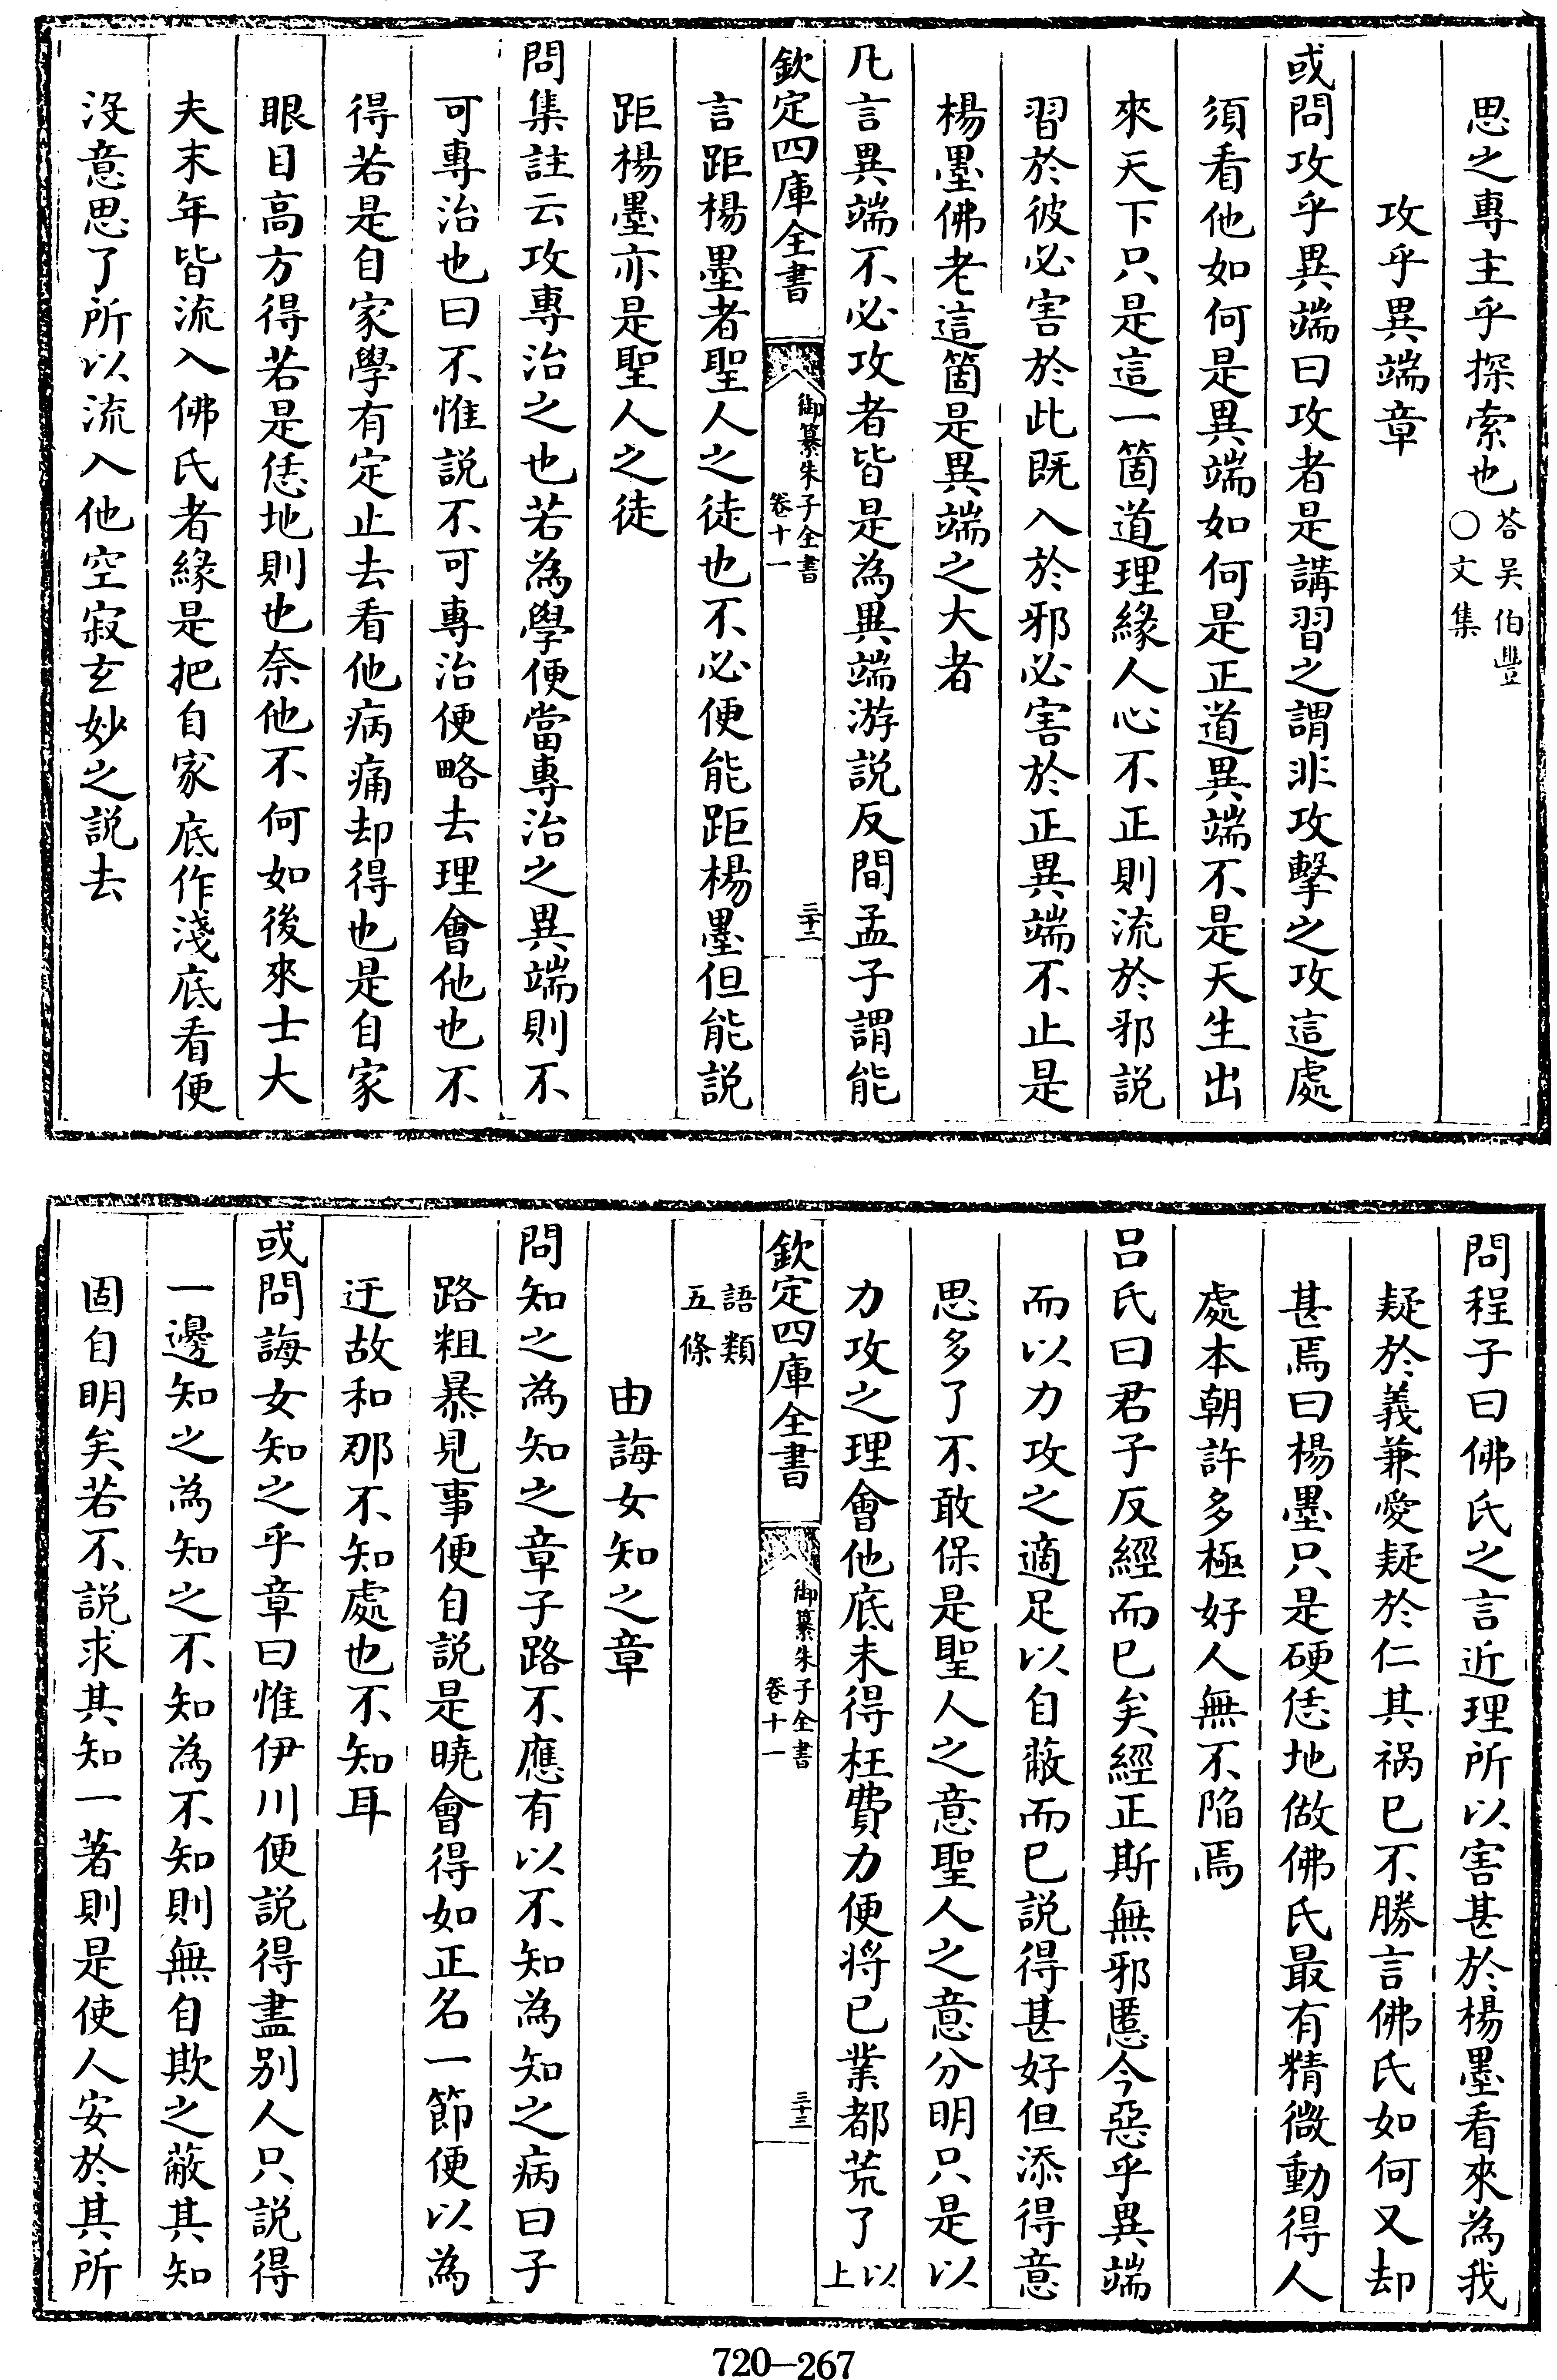 思之專主乎探索也答吳伯豐○文集
攻乎異端章
或問攻乎異端曰攻者是講習之謂非攻擊之攻這處
須看他如何是異端如何是正道異端不是天生出
來天下只是這一箇道理緣人心不正則流於邪說
習於彼必害於此既入於邪必害於正異端不止是
楊墨佛老這箇是異端之大者
凡言異端不必攻者皆是為異端游說反間孟子謂能
欽定四庫全書
御纂朱子全書
卷十一
三十二
言距楊墨者聖人之徒也不必便能距楊墨但能說
距楊墨亦是聖人之徒
問集註云攻專治之也若為學便當專治之異端則不
可專治也曰不惟說不可專治便略去理會他也不
得若是自家學有定止去看他病痛却得也是自家
眼目高方得若是恁地則也奈他不何如後來士大
夫末年皆流入佛氏者緣是把自家底作淺底看便
沒意思了所以流入他空寂玄妙之說去
問程子曰佛氏之言近理所以害甚於楊墨看來為我
疑於義兼愛疑於仁其禍已不勝言佛氏如何又却
甚焉曰楊墨只是硬恁地做佛氏最有精微動得人
處本朝許多極好人無不陷焉
呂氏曰君子反經而已矣經正斯無邪慝今惡乎異端
而以力攻之適足以自蔽而已說得甚好但添得意
思多了不敢保是聖人之意聖人之意分明只是以
力攻之理會他底未得枉費力便將已業都荒了以上
欽定四庫全書
御纂朱子全書
卷十一
三十三
語類五條
由誨女知之章
問知之為知之章子路不應有以不知為知之病曰子
路粗暴見事便自說是曉會得如正名一節便以為
迂故和那不知處也不知耳
或問誨女知之乎章曰惟伊川便說得盡別人只說得
一邊知之為知之不知為不知則無自欺之蔽其知
固自明矣若不說求其知一著則是使人安於其所
720—267